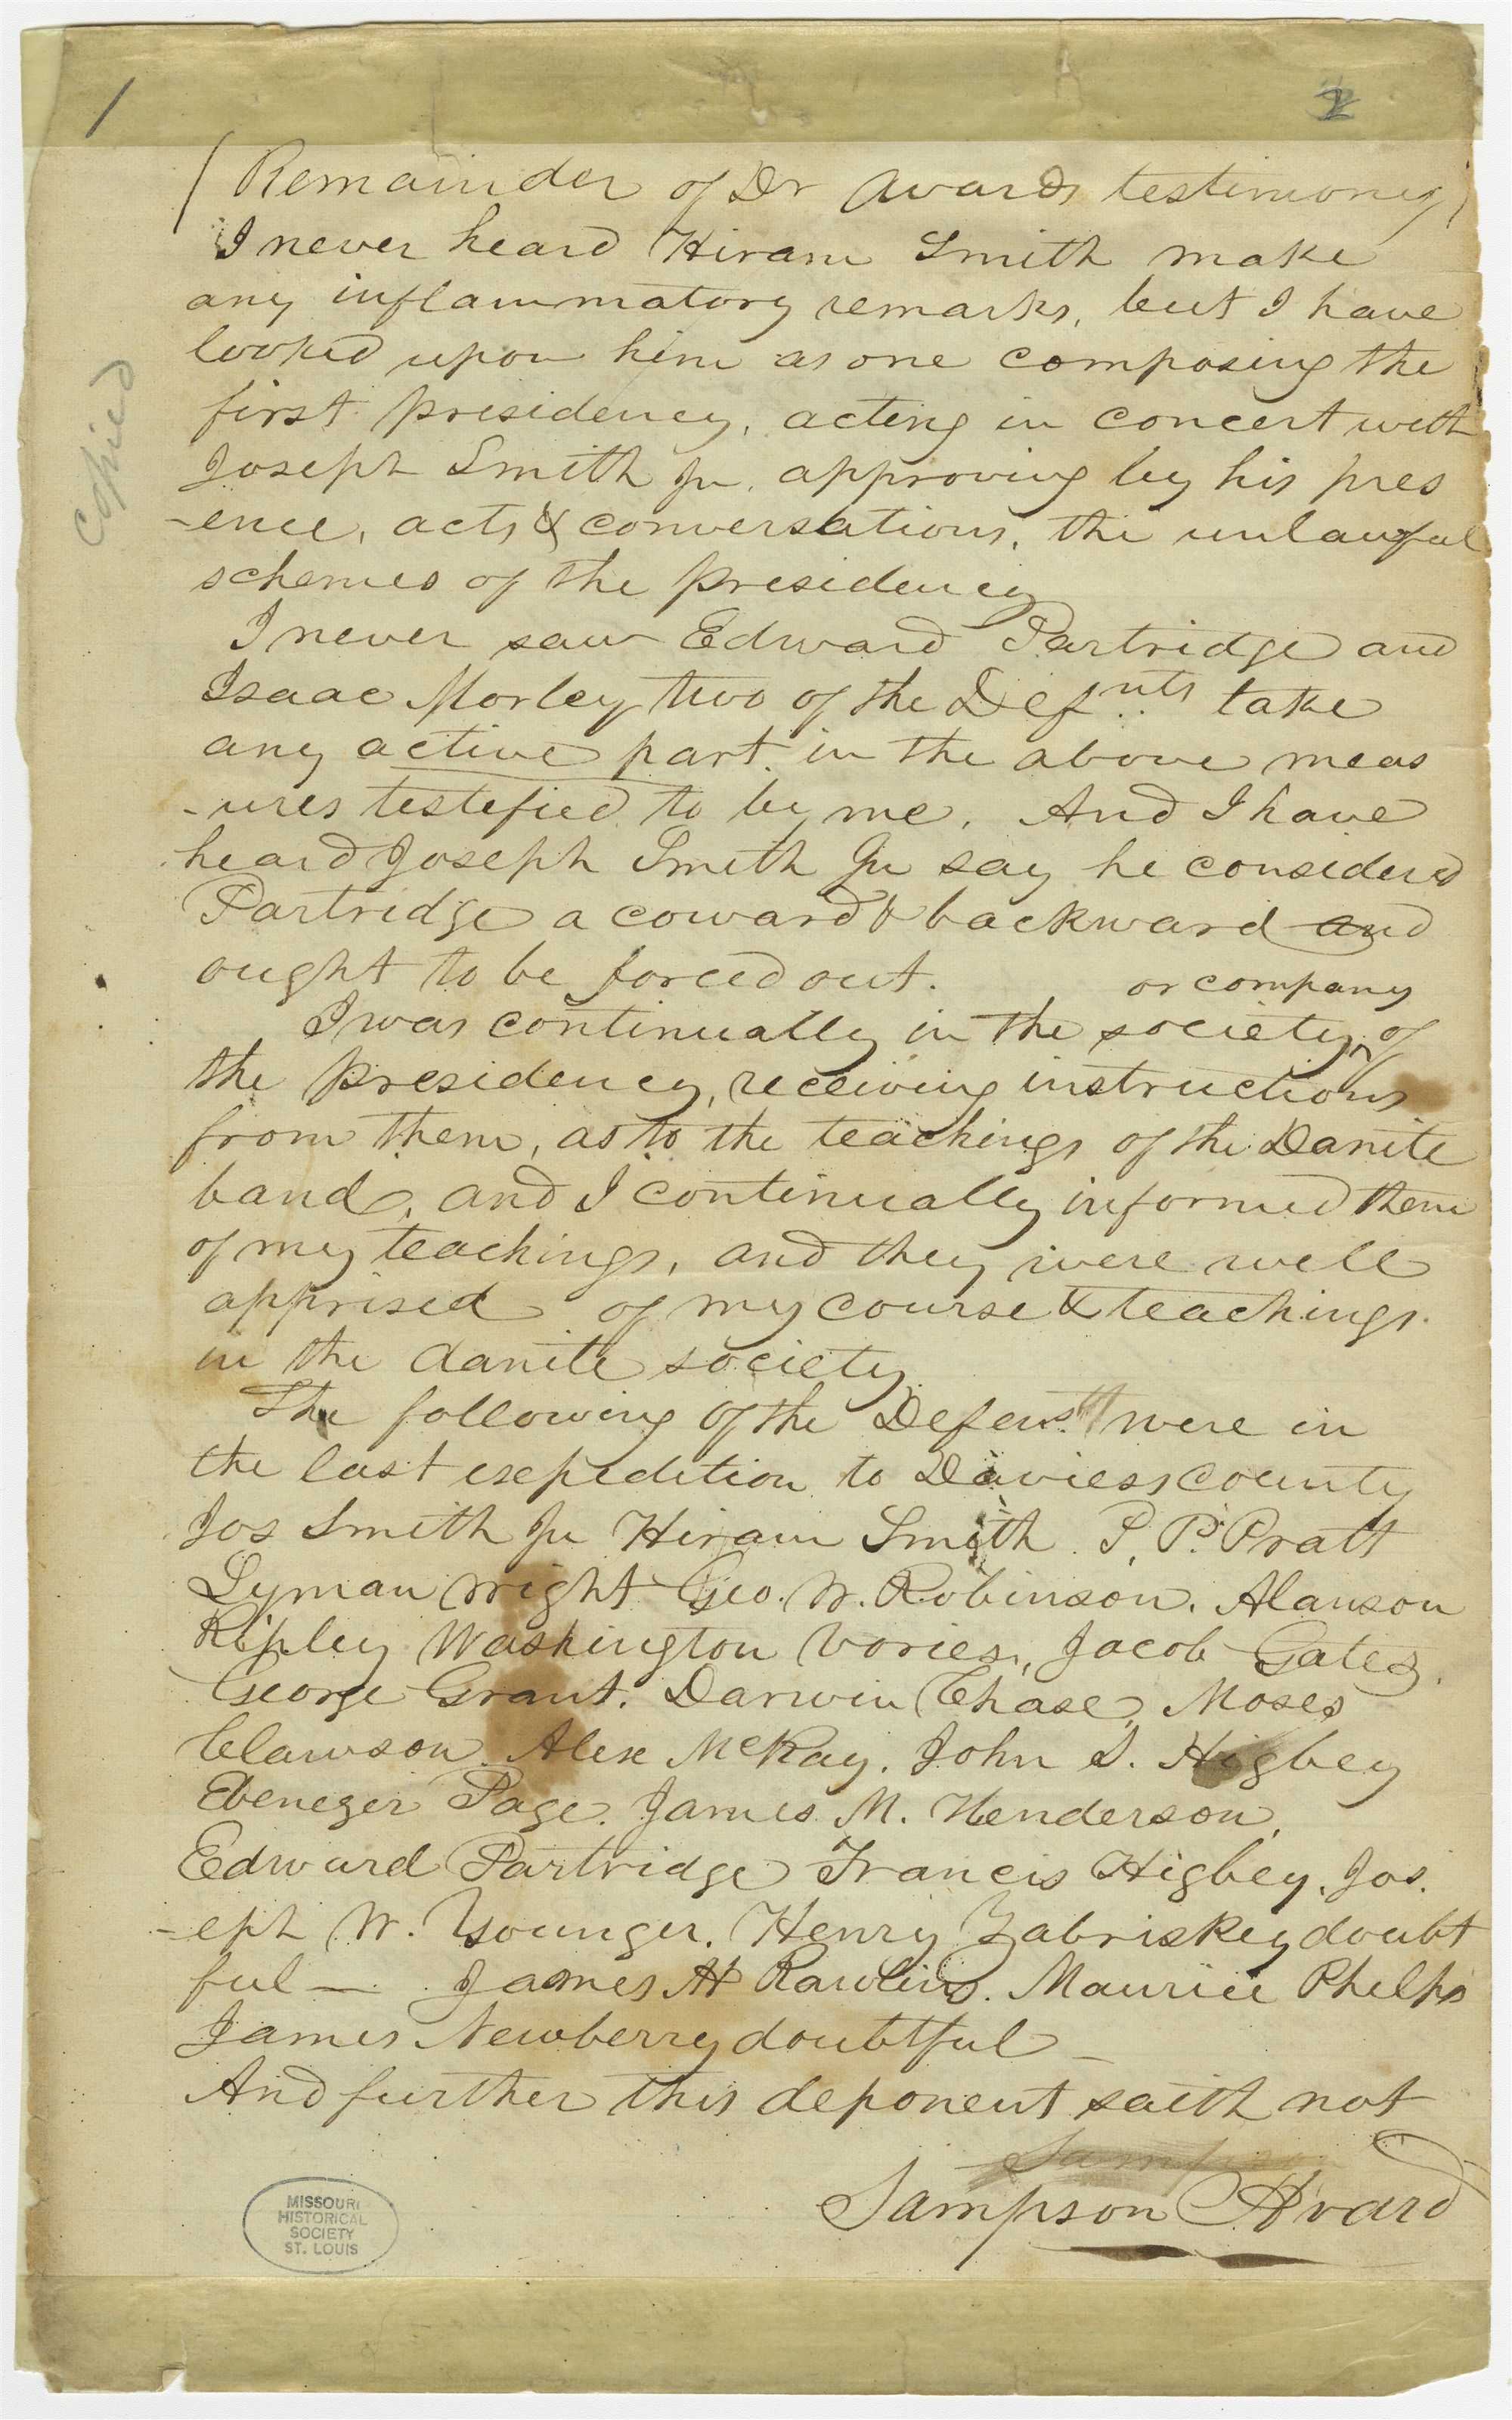 1
2
(Remainder of Dr Avards testimony)
I never heard Hiram Smith make
any inflammatory remarks, but I have
looked upon him as one composing the
first presidency, acting in concert with
Joseph Smith Jr. approving by his pres
-ence, acts & conversations, the unlawful
schemes of the presidency
I never saw Edward Partridge and
Isaac Morley two of the Defnts take
any active part in the above meas
-ures testefied to by me. And I have
heard Joseph Smith Jr say he considered
Partridge a coward & backward and
ought to be forced out.
or company
I was continually in the society ^ of
the presidency, receiving instructions
from them, as to the teachings of the Danite
band, and I continually informed them
of my teachings, and they were well
apprised of my course & teachings
in the danite society
The following of the Defens were in
the last expedition to Daviess county
Jos Smith Jr Hiram Smith P. P. Pratt
Lyman Wright Geo. W. Robinson. Alanson
Ripley Washington Vories, Jacob Gates.
George Grant. Darwin Chase, Moses
Clawson. Alex McRay. John S. Higbey
Ebenezer Page. James M. Henderson,
Edward Partridge Francis Higbey. Jos.
-eph W. Younger. Henry Zabriskey doubt
ful — James H Rawlins. Maurice Phelps
James Newberry doubtful —
And further this deponent saith not
Samps
Sampson Avard
copied
MISSOURI
HISTORICAL
SOCIETY
ST. LOUIS